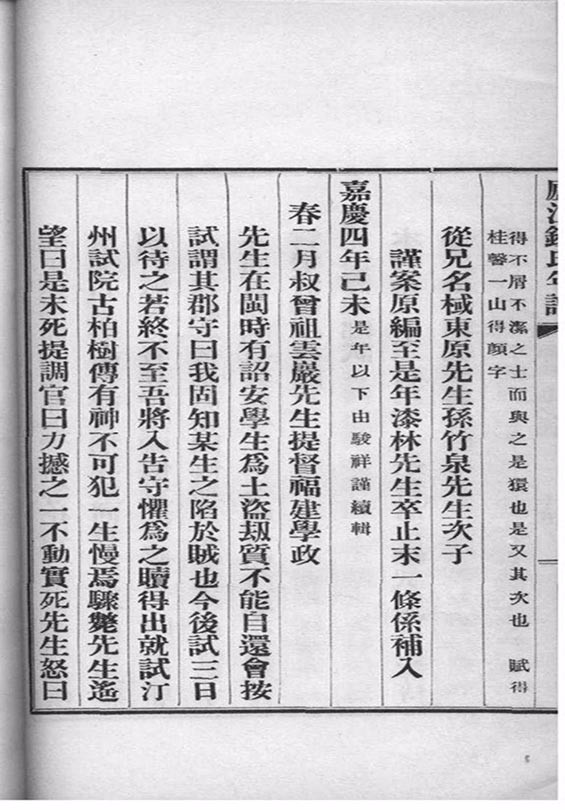 錢氏年譜
得不屑不潔之士而與之是獧也是又其次也　賦得
桂馨一山得顏字
從兄名棫東原先生孫竹泉先生次子
謹案原編至是年漆林先生卒止末一條係補入
嘉慶四年己未是年以下由駿祥謹續輯
春二月叔曾祖雲巖先生提督福建學政
先生在閩時有詔安學生爲土盜刼質不能自還會按
試謂其郡守曰我固知某生之陷於賊也今後試三日
以待之若終不至吾將入告守懼爲之贖得出就試汀
州試院古柏樹傳有神不可犯一生慢焉驟斃先生遙
望曰是未死提調官曰力撼之一不動實死先生怒曰